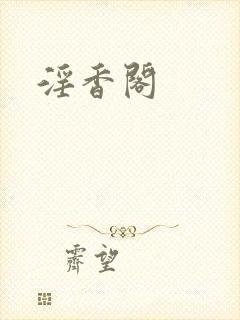 淫香閣
霽望